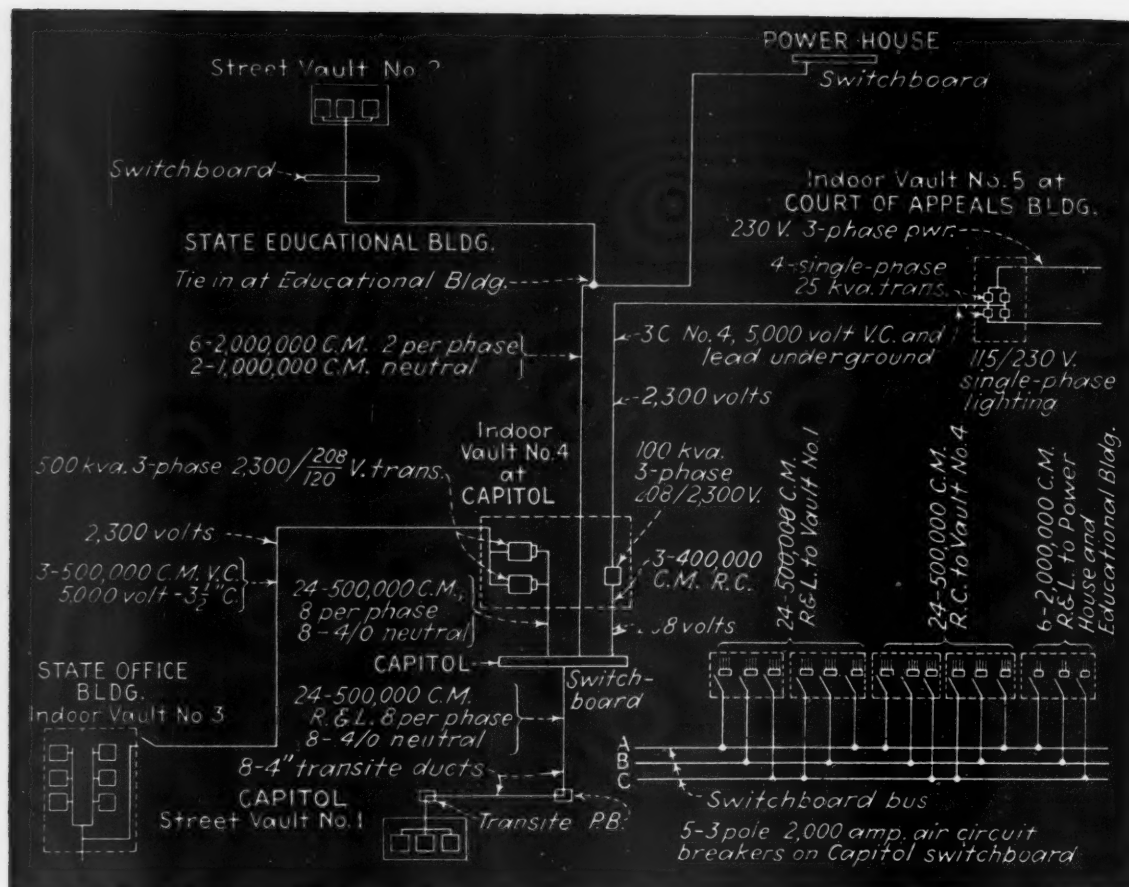 POWER HOUSE
Switchboard
Street Vault No.
Switchboard
STATE EDUCATIONAL BLDG.
Tie in at Educational Bldg.
6-2,000,000 C.M. 2 per phase
2-1,000,000 C.M. neutral
Indoor Vault No. 5 at
COURT OF APPEALS BLDG.
230 V. 3-phase pwr.
4-single-phase
25 kva. trans.
3C No. 4, 5,000 volt V.C. and
lead underground
115/230 V.
single-phase
lighting
2,300 volts
Indoor
Vault No. 4
at
CAPITOL
500 kva. 3-phase 2,300/208/120 V. trans.
100 kva.
3-phase
208/2,300 V.
2,300 volts
3-500,000 C.M. V.C.
5,000 volt-3½"C.
24-500,000 C.M.
8 per phase
8-4/0 neutral
3-400,000
C.M. R.C.
8 volts
CAPITOL
Switch-
board
STATE OFFICE
BLDG.
Indoor Vault No 3
24-500,000 C.M.
R. & L. 8 per phase
8-4/0 neutral
8-4" transite ducts
CAPITOL
Street Vault No. 1
Transite P.B.
24-500,000 C.M.
R.& L. to Vault No. 1
24-500,000 C.M.
R.C. to Vault No. 4
6-2,000,000 C.M.
R.& L. to Power
House and
Educational Bldg.
A
B
C
Switchboard bus
5-3 pole 2,000 amp. air circuit
breakers on Capitol switchboard